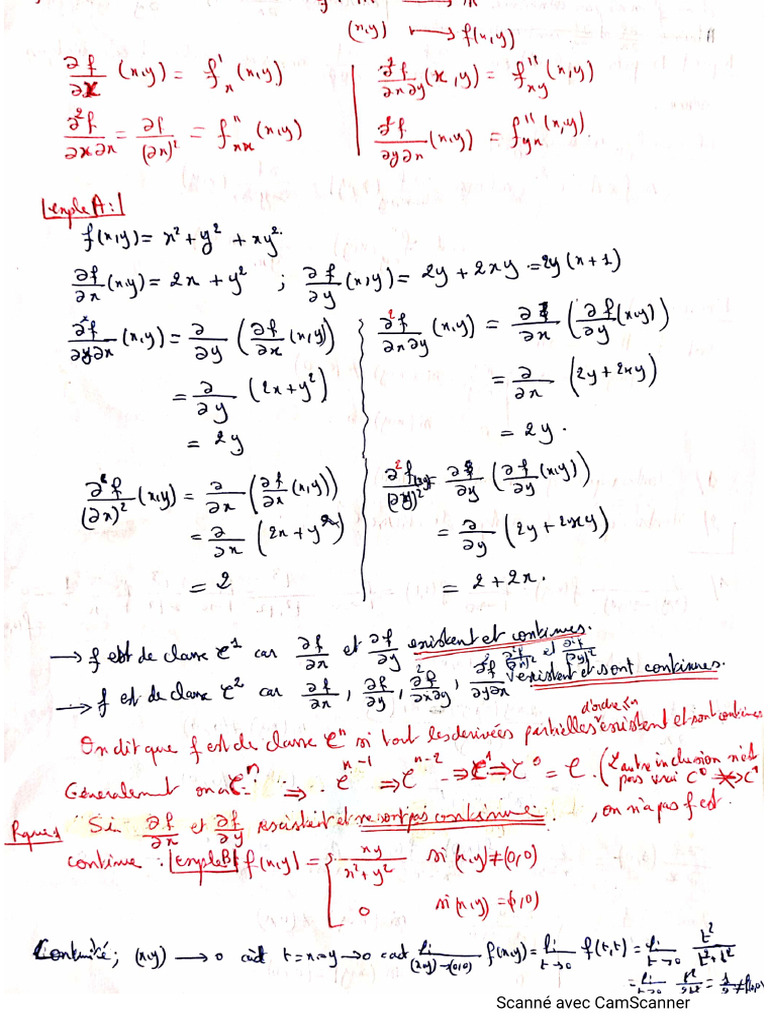 (x,y) ⟼ f(x,y)
∂f/∂x (x,y) = f'x(x,y) | ∂²f/∂x∂y (x,y) = f''xy(x,y)
∂²f/∂x∂x = ∂f/(∂x)² = f''xx(x,y) | ∂²f/∂y∂x (x,y) = f''yx(x,y).
Exple A:
f(x,y) = x² + y² + xy².
∂f/∂x (x,y) = 2x + y² ; ∂f/∂y (x,y) = 2y + 2xy = 2y(x+1)
∂²f/∂y∂x (x,y) = ∂/∂y (∂f/∂x (x,y)) | ∂²f/∂x∂y (x,y) = ∂/∂x (∂f/∂y (x,y))
= ∂/∂y (2x + y²) | = ∂/∂x (2y + 2xy)
= 2y | = 2y.
∂²f/(∂x)² (x,y) = ∂/∂x (∂f/∂x (x,y)) | ∂²f/(∂y)² (x,y) = ∂/∂y (∂f/∂y (x,y))
= ∂/∂x (2x + y²) | = ∂/∂y (2y + 2xy)
= 2 | = 2 + 2x.
→ f est de classe C¹ car ∂f/∂x et ∂f/∂y existent et continues.
→ f est de classe C² car ∂f/∂x, ∂f/∂y, ∂²f/∂x∂y, ∂²f/∂y∂x, ∂²f/(∂x)² et ∂²f/(∂y)² existent et sont continues.
On dit que f est de classe Cⁿ si tout les derivées partielles d'ordre ≤ n existent et sont continues
Généralement on a Cⁿ ⇒ Cⁿ⁻¹ ⇒ Cⁿ⁻² ⇒ C¹ ⇒ C⁰ = C. (L'autre inclusion n'est pas vrai C⁰ ⇏ C¹
Rque: Si ∂f/∂x et ∂f/∂y existent et ne sont pas continue, on n'a pas f est
continue. Exple B f(x,y) = { xy/(x²+y²) si (x,y) ≠ (0,0)
0 si (x,y) = (0,0)
Continuité; (x,y) → 0 càd t = x = y → 0 càd lim (x,y)→(0,0) f(x,y) = lim t→0 f(t,t) = lim t→0 t²/(t²+t²)